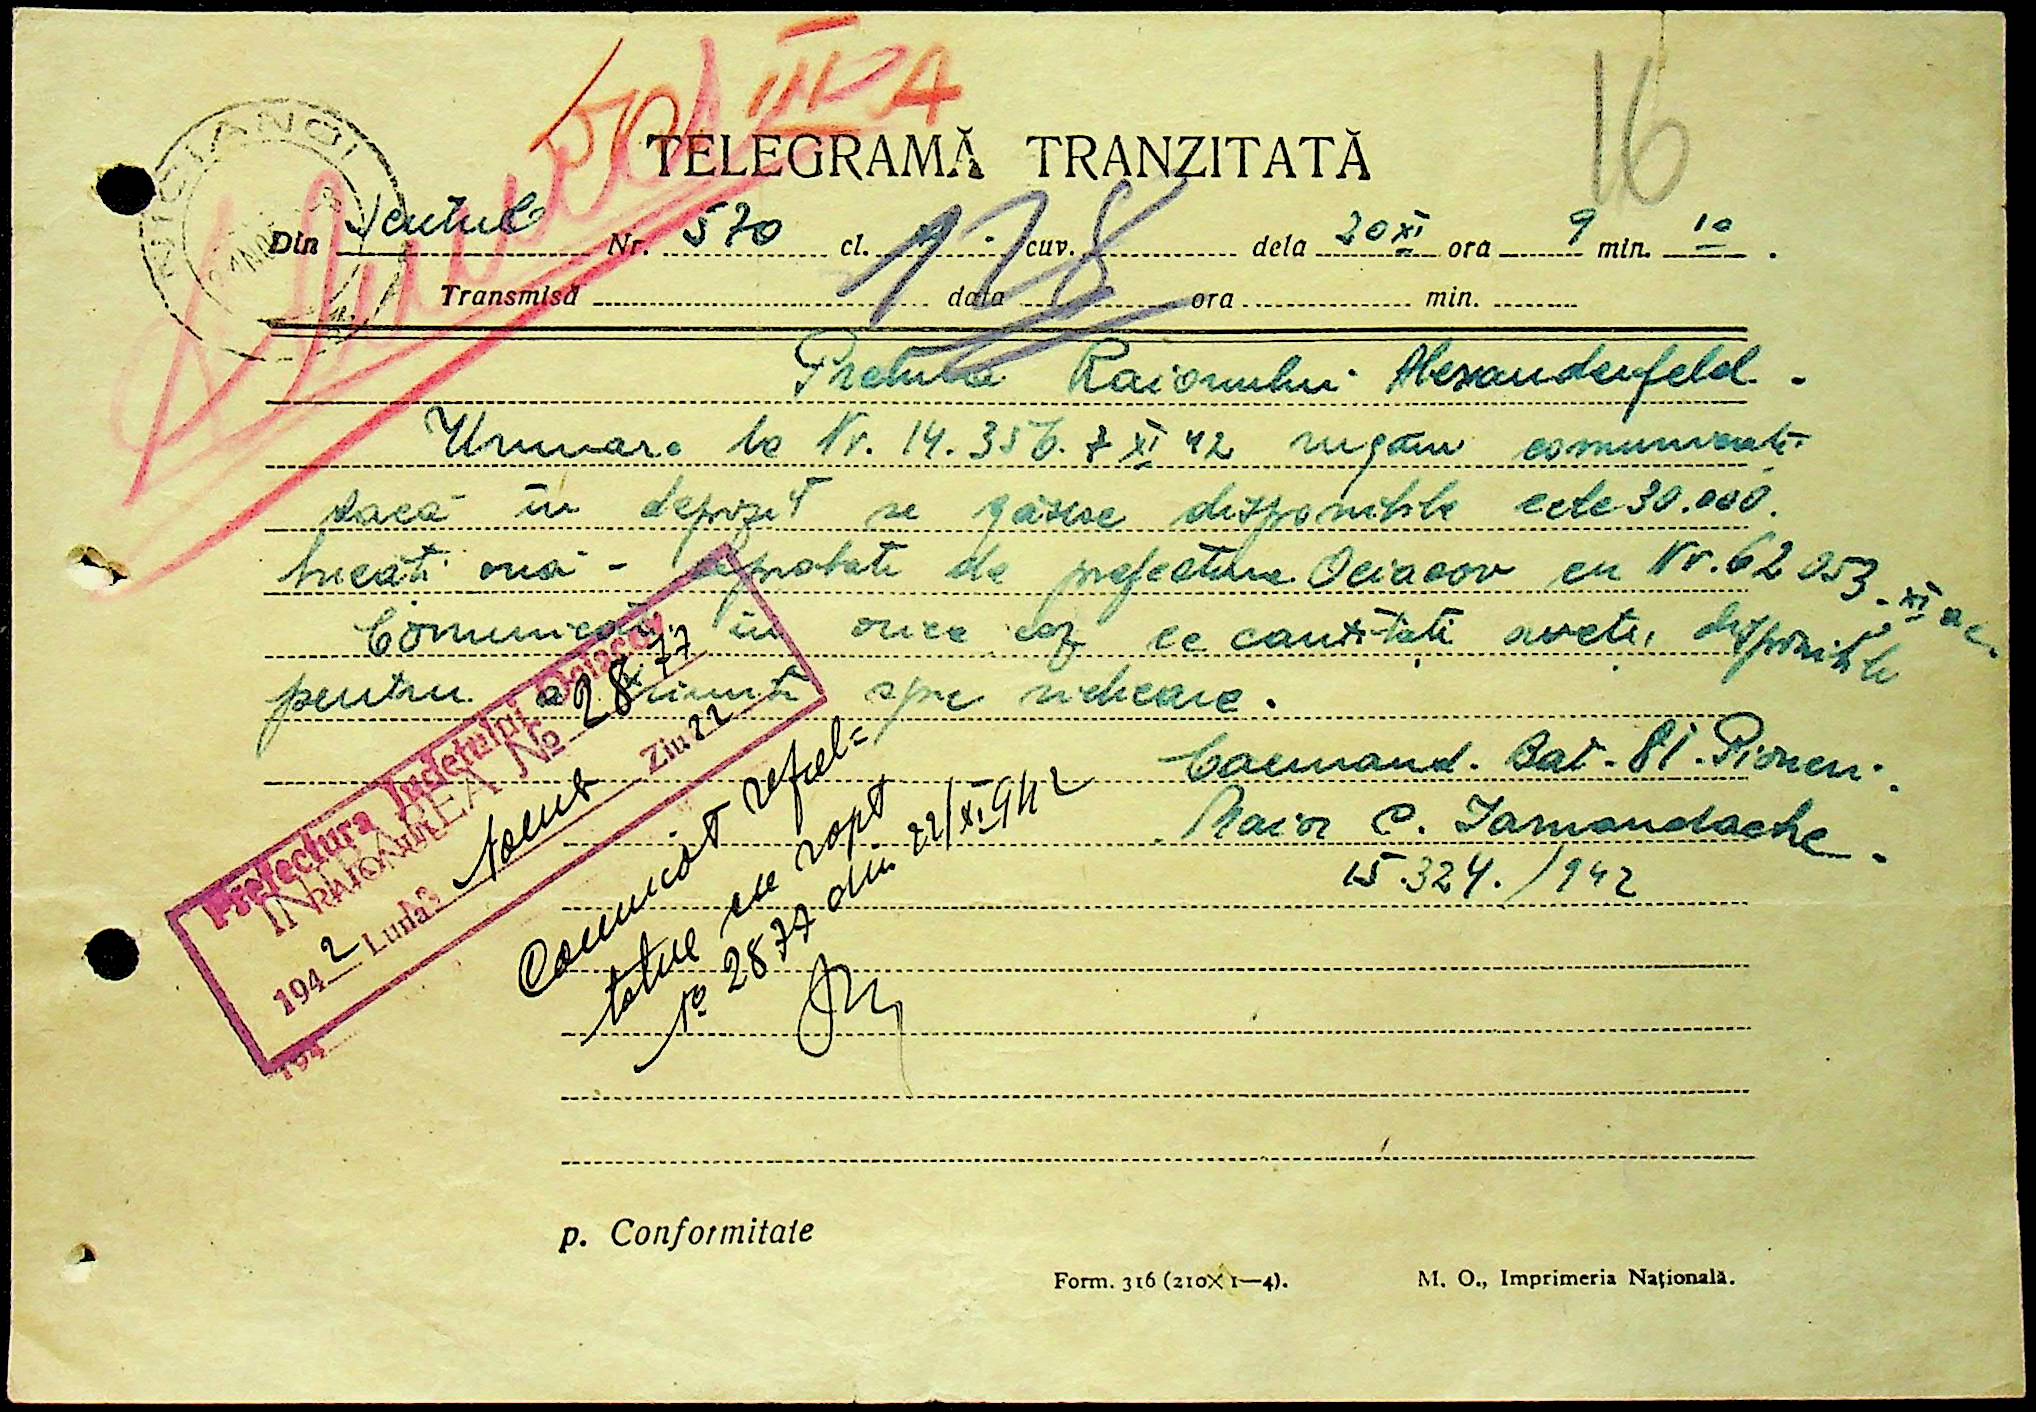 16
TELEGRAMĂ TRANZITATĂ
Din Nr. 570 cl. cuv. dela 20 XI ora 9 min. 10
128
Transmisă data ora min.
Pretura Raionului Alexanderfeld.
Urmare la Nr. 14.356. 7 XI 42 rugăm comunicati
dacă în depozit se găsesc disponibile cele 30.000.
bucăti ouă - aprobate de prefectura Oceacov cu Nr. 62053. XI ac.
Comunicati în orice caz ce cantităti aveti disponibile
pentru a trimite spre ridicare.
Comand. Bat. 81. Pioneri.
Maior C. Iamandache.
15.324. / 942
Prefectura Judetului Oceacov
INTRAREA No 2877
194 2 Luna Noemb Ziua 22
194
Comunicat rezul=
tatul cu rapt
No 2877 din 22/XI 942
p. Conformitate
Form. 316 (210X 1—4). M. O., Imprimeria Naţională.